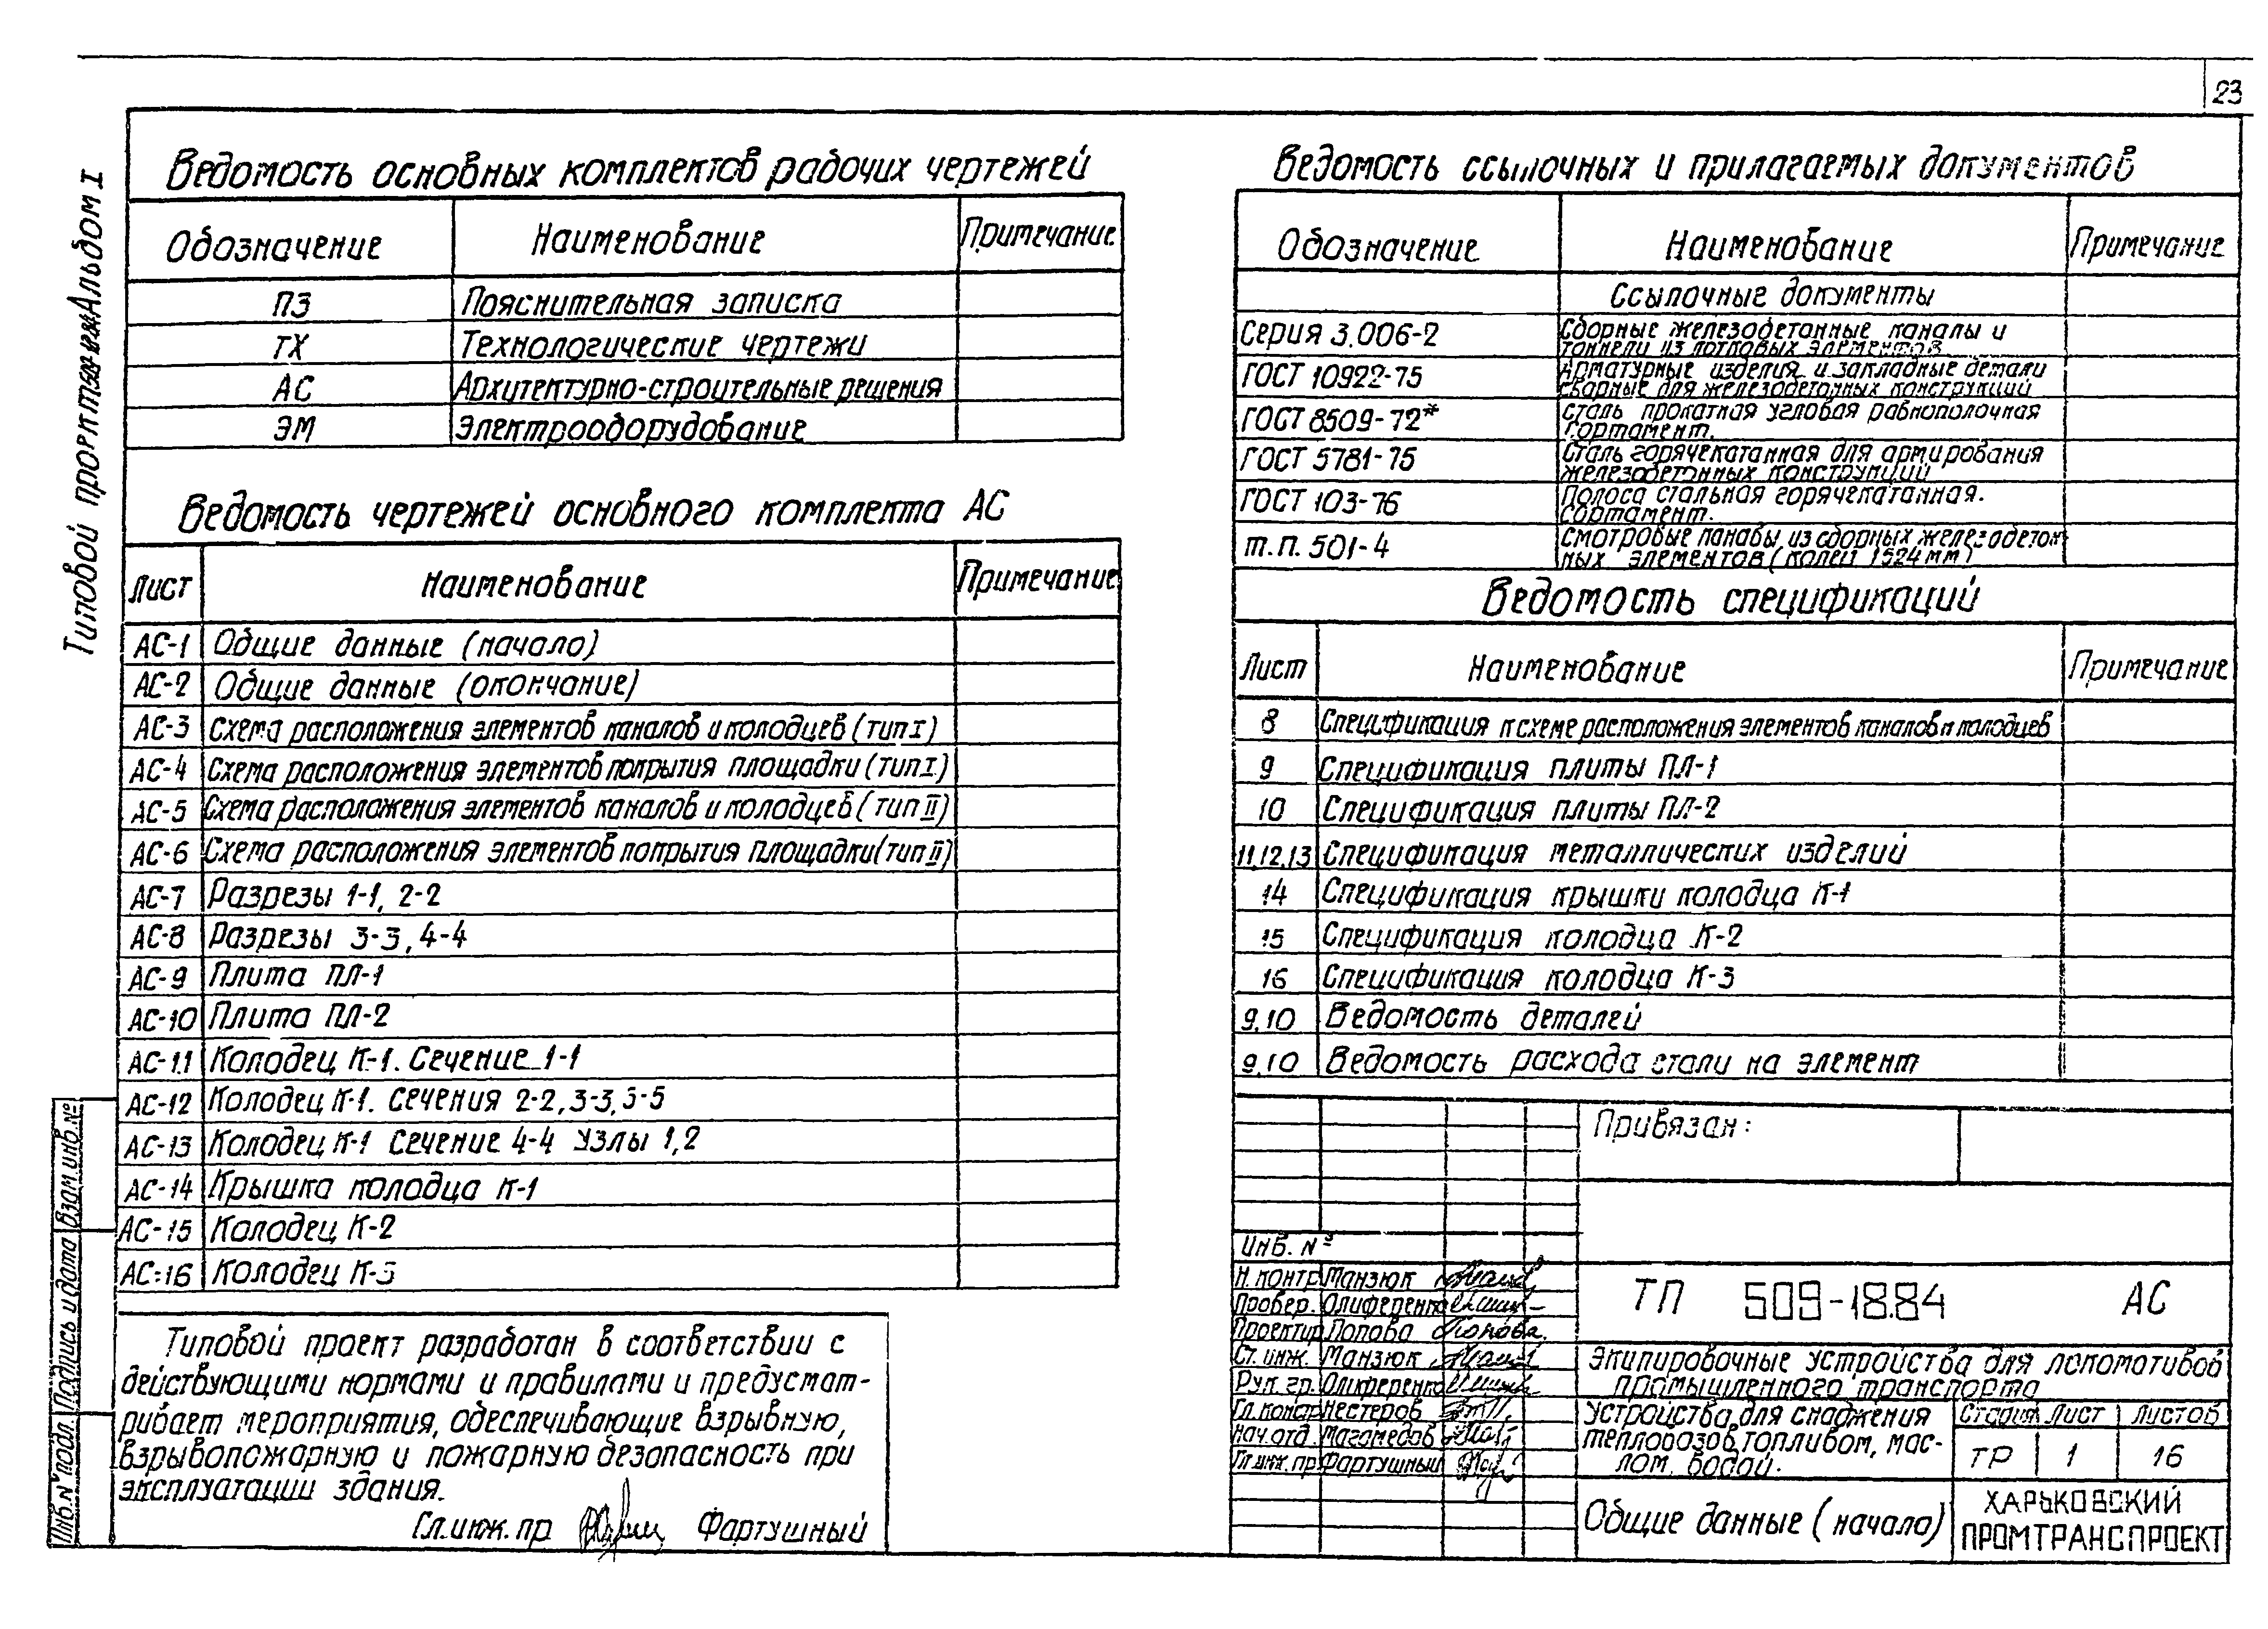 23
Типовой проект 509-18.84 Альбом I
Ведомость основных комплектов рабочих чертежей
Обозначение Наименование Примечание
ПЗ Пояснительная записка
ТХ Технологические чертежи
АС Архитектурно-строительные решения
ЭМ Электрооборудование
Ведомость чертежей основного комплекта АС
Лист Наименование Примечание
АС-1 Общие данные (начало)
АС-2 Общие данные (окончание)
АС-3 Схема расположения элементов каналов и колодцев (тип I)
АС-4 Схема расположения элементов покрытия площадки (тип I)
АС-5 Схема расположения элементов каналов и колодцев (тип II)
АС-6 Схема расположения элементов покрытия площадки (тип II)
АС-7 Разрезы 1-1, 2-2
АС-8 Разрезы 3-3, 4-4
АС-9 Плита ПЛ-1
АС-10 Плита ПЛ-2
АС-11 Колодец К-1. Сечение 1-1
АС-12 Колодец К-1. Сечения 2-2, 3-3, 5-5
АС-13 Колодец К-1 Сечение 4-4 Узлы 1,2
АС-14 Крышка колодца К-1
АС-15 Колодец К-2
АС-16 Колодец К-3
Типовой проект разработан в соответствии с
действующими нормами и правилами и предусмат-
ривает мероприятия, обеспечивающие взрывную,
взрывопожарную и пожарную безопасность при
эксплуатации здания.
Гл.инж.пр Фартушный
Инв.N°подл. Подпись и дата Взам.инв.№
Ведомость ссылочных и прилагаемых документов
Обозначение Наименование Примечание
Ссылочные документы
Серия 3.006-2 Сборные железобетонные каналы и
тоннели из лотковых элементов
ГОСТ 10922-75 Арматурные изделия и закладные детали
сварные для железобетонных конструкций
ГОСТ 8509-72* Сталь прокатная угловая равнополочная
Сортамент.
ГОСТ 5781-75 Сталь горячекатанная для армирования
железобетонных конструкций
ГОСТ 103-76 Полоса стальная горячекатанная.
Сортамент.
т.п. 501-4 Смотровые канавы из сборных железобетон
ных элементов (колеи 1524 мм)
Ведомость спецификаций
Лист Наименование Примечание
8 Спецификация к схеме расположения элементов каналов и колодцев
9 Спецификация плиты ПЛ-1
10 Спецификация плиты ПЛ-2
11,12,13 Спецификация металлических изделий
14 Спецификация крышки колодца К-1
15 Спецификация колодца К-2
16 Спецификация колодца К-3
9,10 Ведомость деталей
9,10 Ведомость расхода стали на элемент
Привязан:
Инв. №
Н.контр. Манзюк
Провер. Олиференко
Проектир Попова
Ст. инж. Манзюк
Рук. гр. Олиференко
Гл.констр Нестеров
Нач.отд. Магомедов
Гл.инж.пр Фартушный
ТП 509-18.84 АС
Экипировочные устройства для локомотивов
промышленного транспорта
Устройства для снабжения
тепловозов топливом, мас-
лом, водой.
Стадия Лист Листов
ТР 1 16
Общие данные (начало)
ХАРЬКОВСКИЙ
ПРОМТРАНСПРОЕКТ